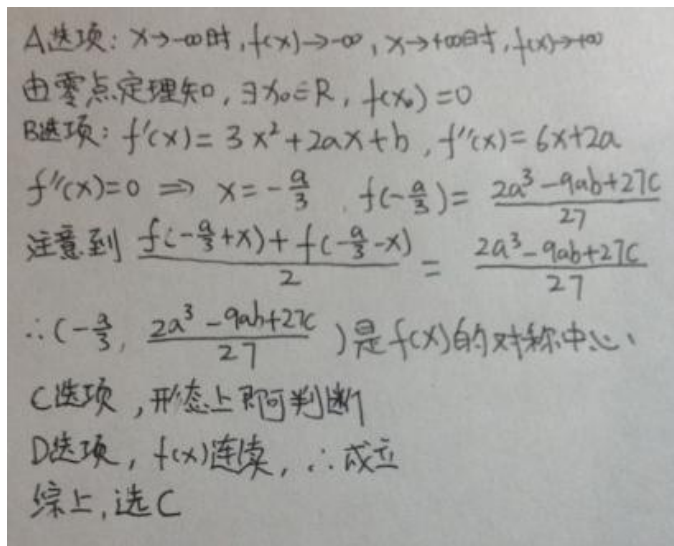 A选项: x→-∞时, f(x)→-∞, x→+∞时, f(x)→+∞
由零点定理知, ∃x₀∈R, f(x₀)=0
B选项: f'(x)=3x²+2ax+b, f''(x)=6x+2a
f''(x)=0 ⇒ x=-a/3, f(-a/3)=(2a³-9ab+27c)/27
注意到 (f(-a/3+x)+f(-a/3-x))/2 = (2a³-9ab+27c)/27
∴(-a/3, (2a³-9ab+27c)/27)是f(x)的对称中心、
C选项, 形态上即可判断
D选项, f(x)连续, ∴成立
综上, 选C